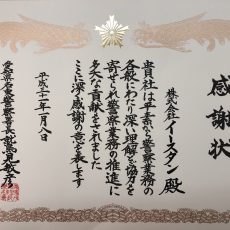 感謝状
株式会社イースタン殿
貴社は平素から警察業務の
各般にわたり深い理解と協力を
寄せられ警察業務の推進に
多大な貢献をされました
ここに深く感謝の意を表します
平成二十一年一月八日
愛知県